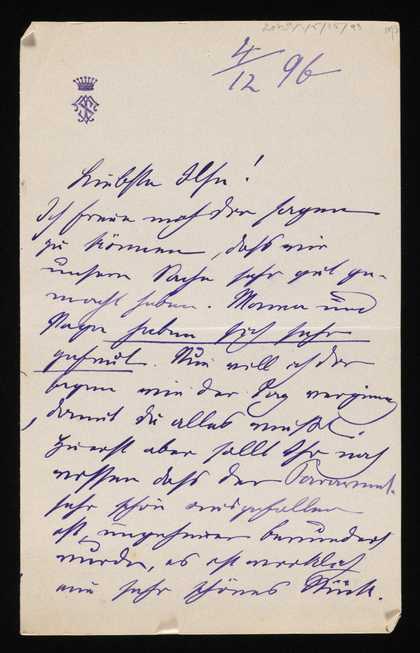 4/12 96
Liebste Ilse!
Ich freue mich dir sagen
zu können, daß wir
unsere Sache sehr gut ge-
macht haben. Mama und
Papa haben sich sehr
gefreut. Nun will ich dir
sagen wie der Tag verging
damit du alles weißt.
Zuerst aber sollt Ihr noch
wissen daß der Paravent
sehr schön ausgefallen
ist, ungeheuer bewundert
wurde, es ist wirklich
ein sehr schönes Stück.